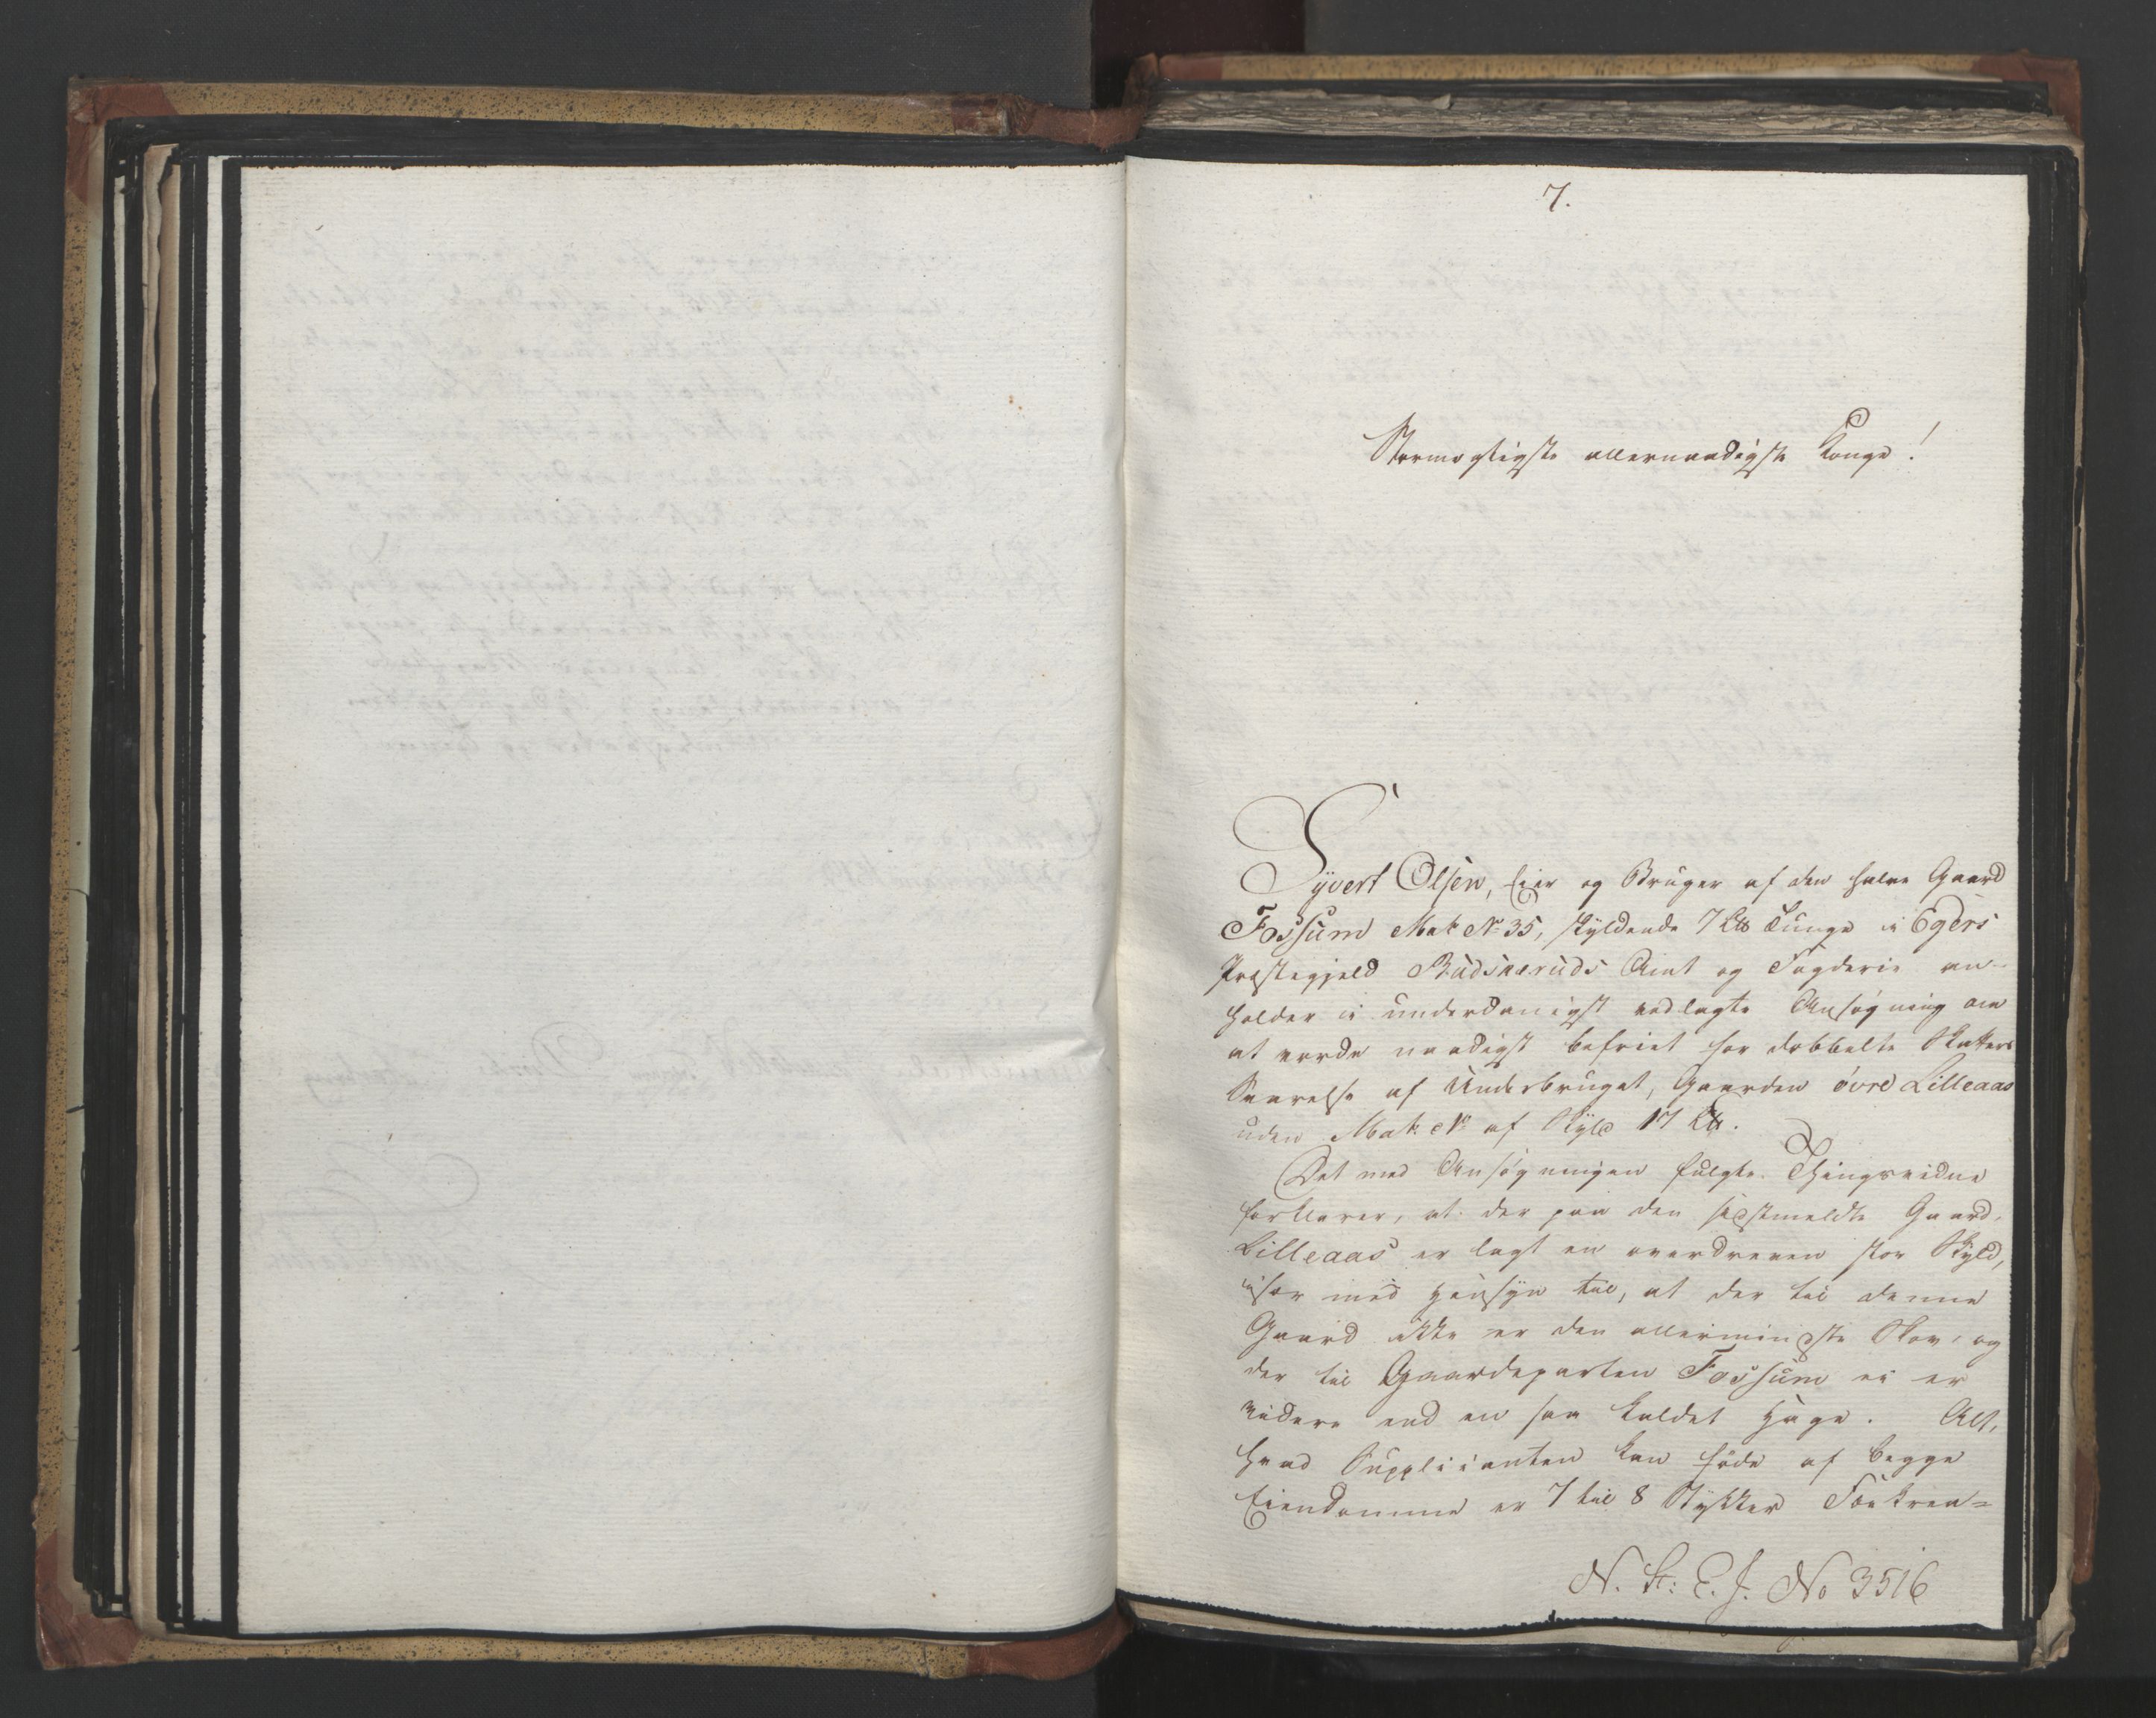 7.
Stormægtigste allernaadigste Konge!
Syvert Olsen, Eier og Bruger af den halve Gaard
Fossum Mat: No 35, skyldende 7 Lb Tunge i Egers
Præstegjeld Budskeruds Amt og Fogderie an-
holder i underdanigst vedlagte Ansøgning om
at vorde naadigst befriet for dobbelte Skatters
Svarelse af Underbruget, Gaarden øvre Lilleaas
uden Mat: No af Skyld 17 Lb.
Det med Ansøgningen fulgte Thingsvidne
forklarer, at der paa den sidstmeldte Gaard,
Lilleaas er lagt en overdreven stor Skyld,
især med Hensyn til, at der til denne
Gaard ikke er den allermindste Skov, og
der til Gaardeparten Fossum ei er
videre end en saa kaldet Hage. Alt,
hvad Supplicanten kan føde af begge
Eiendomme er 7 til 8 Stykker Foekrea=
N. St: E. J. No 3516